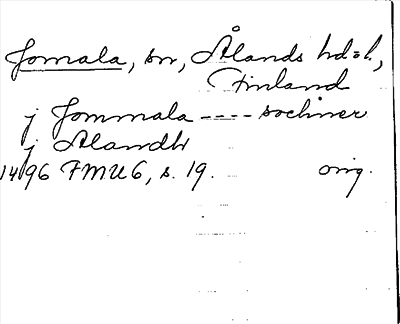 Jomala, sn, Ålands hd=l.,
Finland
j Jommala ---- sochner
j Alandh
1496 FMU 6, s. 19. orig.